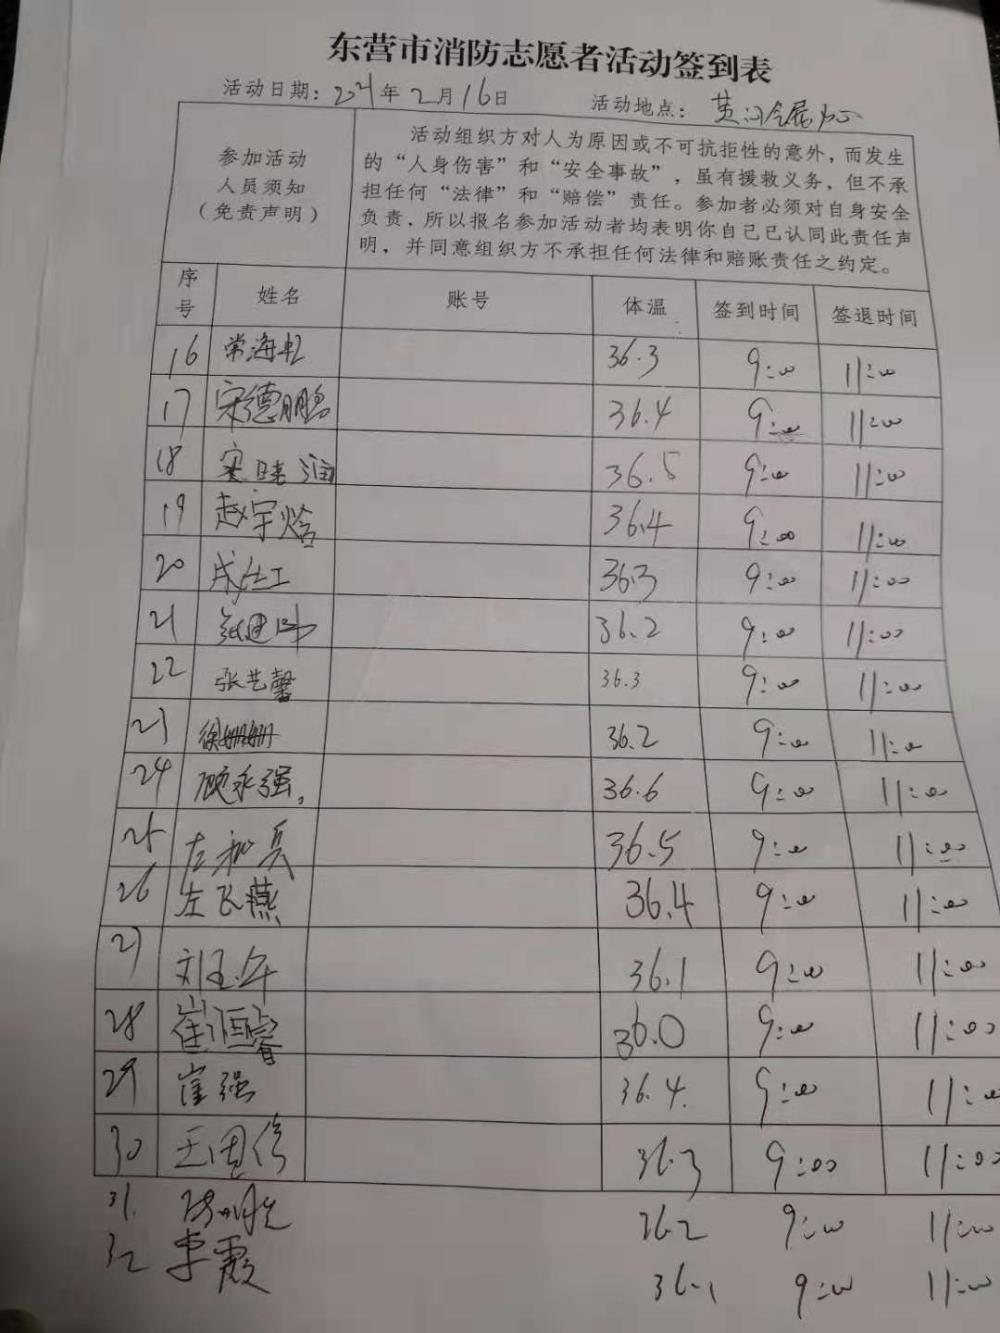 东营市消防志愿者活动签到表
活动日期：2021年2月16日 活动地点：黄河会展中心
参加活动
人员须知
（免责声明）
活动组织方对人为原因或不可抗拒性的意外，而发生
的“人身伤害”和“安全事故”，虽有援救义务，但不承
担任何“法律”和“赔偿”责任。参加者必须对自身安全
负责，所以报名参加活动者均表明你自己已认同此责任声
明，并同意组织方不承担任何法律和赔账责任之约定。
序号 姓名 账号 体温 签到时间 签退时间
16 常海 36.3 9:00 11:00
17 宋德鹏 36.4 9:00 11:00
18 润 36.5 9:00 11:00
19 赵宇焓 36.4 9:00 11:00
20 成仕工 36.3 9:00 11:00
21 36.2 9:00 11:00
22 张艺馨 36.3 9:00 11:00
23 徐姗姗 36.2 9:00 11:00
24 顾永强 36.6 9:00 11:00
25 左兵 36.5 9:00 11:00
26 左飞燕 36.4 9:00 11:00
27 刘玉 36.1 9:00 11:00
28 崔恒睿 36.0 9:00 11:00
29 崔强 36.4 9:00 11:00
30 王 36.3 9:00 11:00
31. 36.2 9:00 11:00
32 李霞 36.1 9:00 11:00